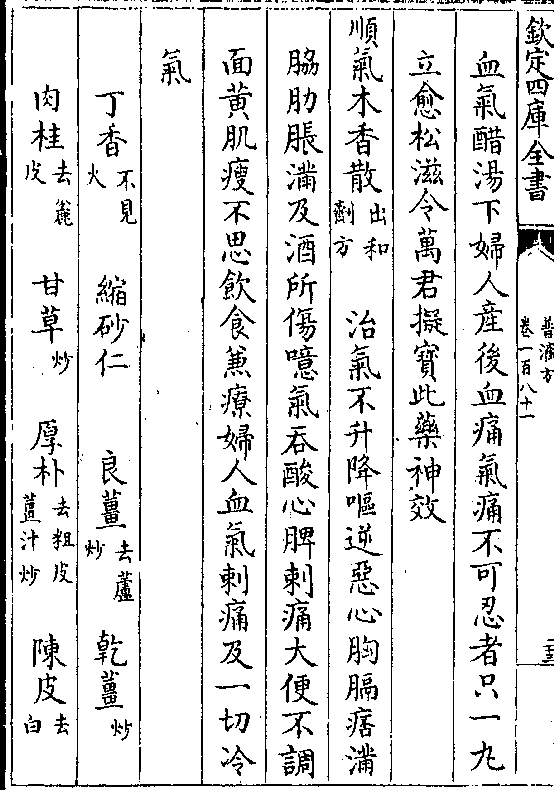 欽定四庫全書
普濟方
卷一百八十一
血氣醋湯下婦人産後血痛氣痛不可忍者只一九
立愈松滋令萬君擬寳此藥神效
順氣木香散出和劑方 治氣不升降嘔逆惡心胸膈痞滿
脇肋脹滿及酒所傷噫氣吞酸心脾刺痛大便不調
面黄肌瘦不思飲食兼療婦人血氣刺痛及一切冷
氣
丁香不見火 縮砂仁 良薑去蘆炒 乾薑炒
肉桂去麄皮 甘草炒 厚朴去粗皮薑汁炒 陳皮去白